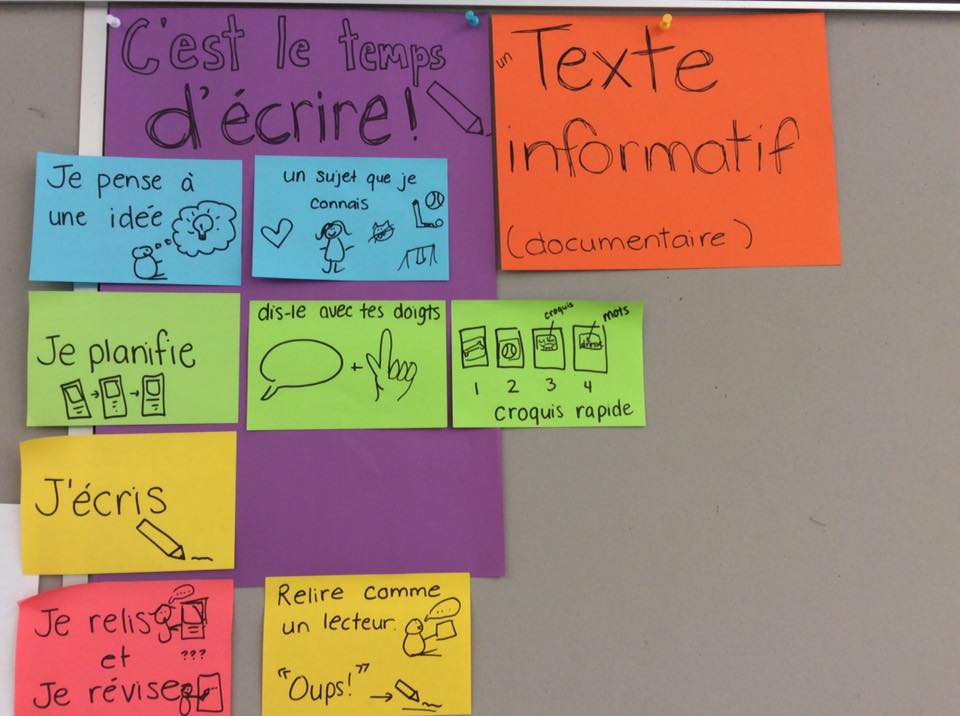 C'est le temps
d'écrire!
un
Texte
informatif
(documentaire)
Je pense à
une idée
un sujet que je
connais
Je planifie
dis-le avec tes doigts
+
croquis
mots
1 2 3 4
croquis rapide
J'écris
Je relis
???
et
Je révise
Relire comme
un lecteur.
"Oups!"